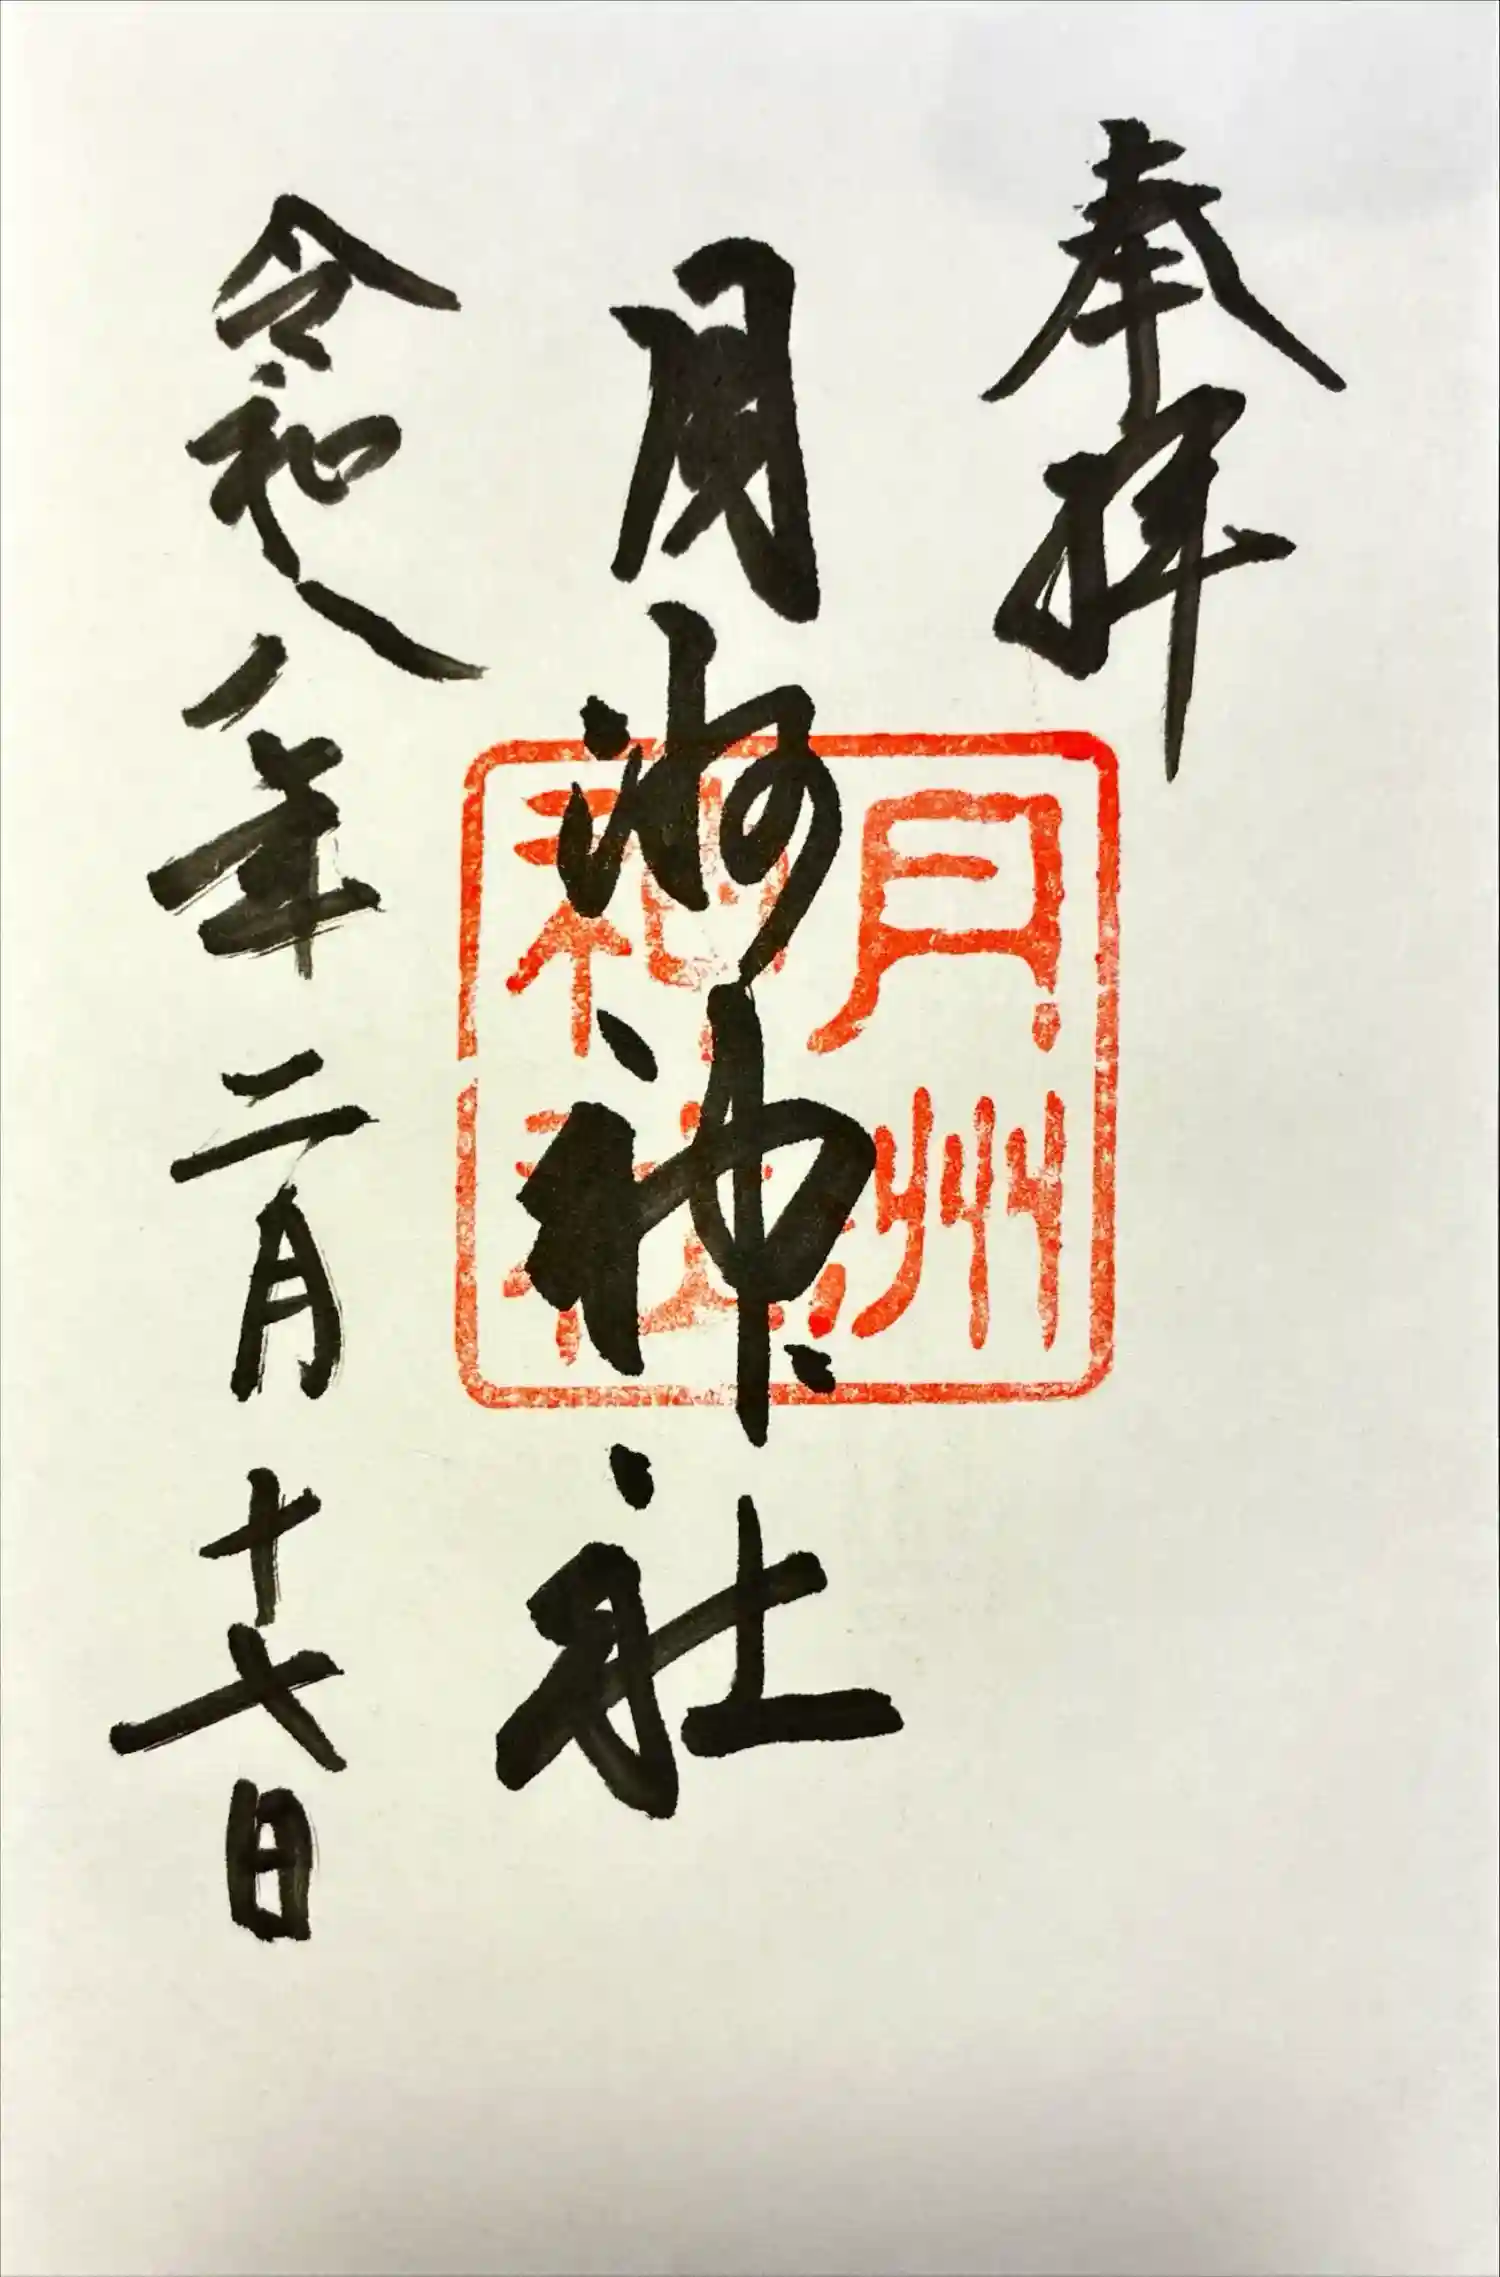 奉拝
月洲神社
令和八年二月十七日
月洲
神社